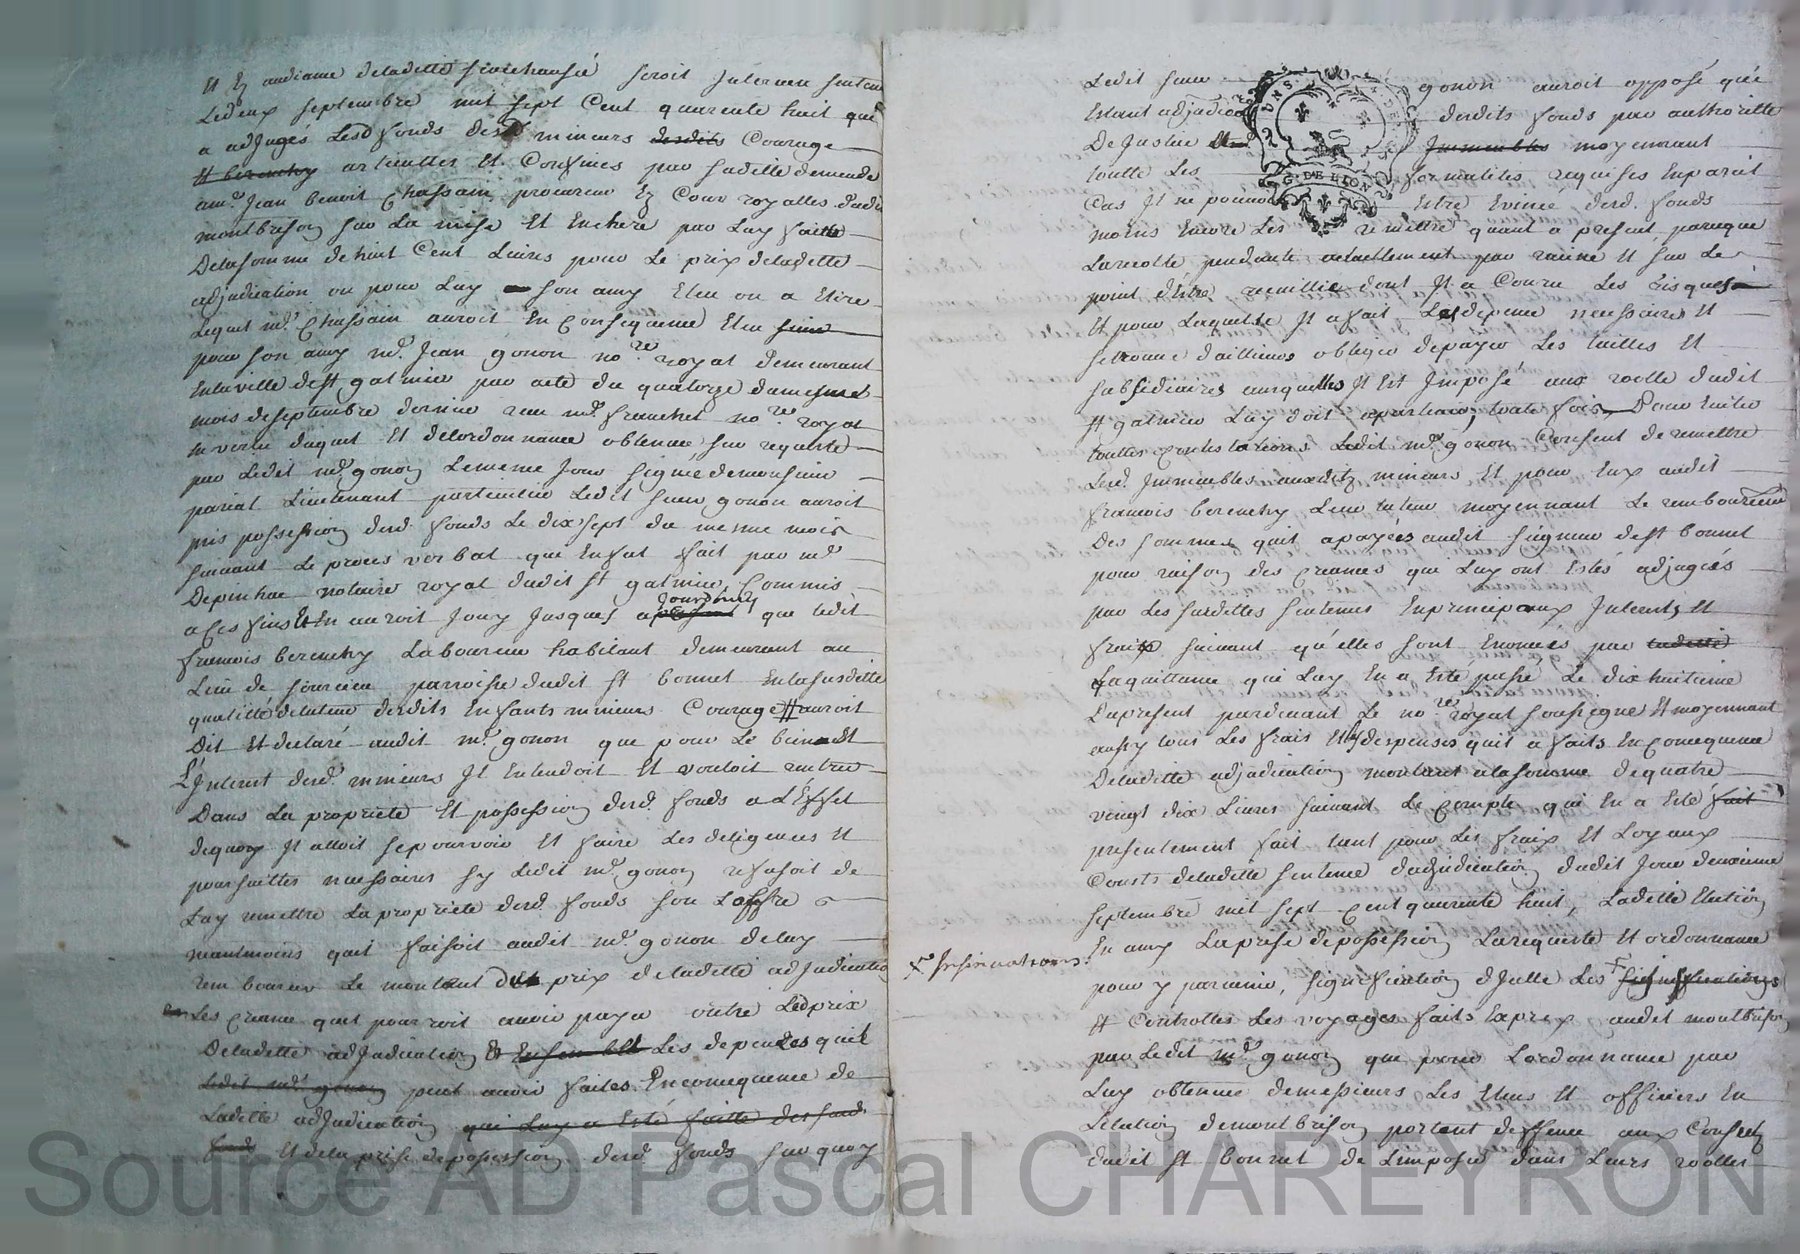 Et En audiance deladitte senechaussé seroit Intervenu sentence
Ledeux septembre mil sept Cent quarente huit qui
a adjugés Lesd fonds desd mineurs desdits Courage
et berenchy articulles Et Confines par laditte demande
a me. Jean benoit Chassain procureur Es Cour royalles dudit
montbrison sur La mise Et Enchere par Luy faitte
Delasomme de huit Cent Livres pour Le prix deladitte
adjudication ou pour Luy son amy Eleu ou a Elire
Lequel me. Chassain auroit En Consequence Eleu
pour son amy me. Jean gonon nore. royal demeurant
Enlaville de st galmier par acte du quatorze dumesme
mois de septembre dernier receu me. franchet nore. royal
En vertu duquel Et delordonnance obtenue sur requeste
par Ledit me. gonon Lememe Jour signé demonsieur
pariat Lieutenant particulier Ledit sieur gonon auroit
pris possession desd. fonds Le dix sept du mesme mois
suivant Le proces verbal qui En fut fait par me
Depinhac notaire royal dudit st galmier, Commis
a Ces fins Et En auroit Jouy Jusques a present Jourdhuy que Ledit
francois berenchy Laboureur habitant demeurant au
Lieu de sourcieu parroisse dudit st bonnet Enlasusditte
qualitté detuteur desdits Enfants mineurs Courage auroit
Dit Et declaré audit me. gonon que pour Le bien Et
L'Interest desd. mineurs Il Entendoit Et vouloit rentrer
Dans La propriete Et possession desd. fonds a L'Effet
dequoy Il alloit se pourvoir Et faire Les deligences Et
poursuittes necessaires sy Ledit me. gonon refusoit de
Luy remettre La propriete desd. fonds sur Loffre
neantmoins quil faisoit audit me. gonon deluy
rembourser Le montant du prix deladitte adjudication
Les Creance quil pourroit avoir paya outre Led prix
Deladitte adjudication Et Ensemble Les depenses quil
Ledit me. gonon peut avoir faites En consequence de
Laditte adjudication qui Luy a Esté faitte desfond
fonds Et dela prise depossession desd. fonds surquoy
Ledit sieur gonon auroit opposé qu'
Estant adjudicataire desdits fonds par authoritte
De Justice Immeubles moyennant
toutte Les formalites requises En pareil
Cas Il ne pouvoit Estre Evincé desd. fonds
moins Encore Les remettre quant a present parceque
Larecolte pendante actuellement par racine Et sur Le
point d'Estre recuillie dont Il a Couru Les risques
Et pour Laquelle Il a fait Les depence necessaires Et
se trouve dailleurs obligé depayer Les tailles Et
subsidiaires auxquelles Il Est Imposé aux rolle dudit
st galmier Luy doit apartenir, toute fois Pour Eviter
touttes Contestations Ledit me. gonon Consent deremettre
Lesd. Immeubles auxditz mineurs Et pour Eux audit
francois berenchy Leur tuteur moyennant Le remboursement
Des sommes quil apayées audit seigneur de st bonnet
pour raison des Creances qui Luy ont Estés adjugées
par Les susdittes sentences En principaux Interests Et
fraix suivant qu'elles sont Enoncés par laditte
Laquittance qui Luy En a Esté passé Le dix huitieme
Dupresent pardevant Le nore. royal soussigné Et moyennant
aussy tous Les frais Et despenses quil a faits En consequence
Deladitte adjudication montant alasomme dequatre
vingt dix Livres suivant Le Compte qui En a Esté fait
presentement fait tant pour Les fraix Et Loyaux
Cousts deladitte sentence dadjudication dudit Jour deuxieme
septembre mil sept Cent quarente huit, Laditte Election
En amy La prise depossession Larequeste Et ordonnance
x Insinuations.
pour y parvenir, signification dJcelle Les x significations
Et Controlles Les voyages faits Exprex audit montbrison
par Ledit me. gonon que pour Lordonnance par
Luy obtenue demessieurs Les Eleus Et officiers En
Lelection demontbrison portant deffence aux Consuls
dudit st bonnet de Limposer dans Leurs rolles
G. DE LION
Source AD Pascal CHAREYRON